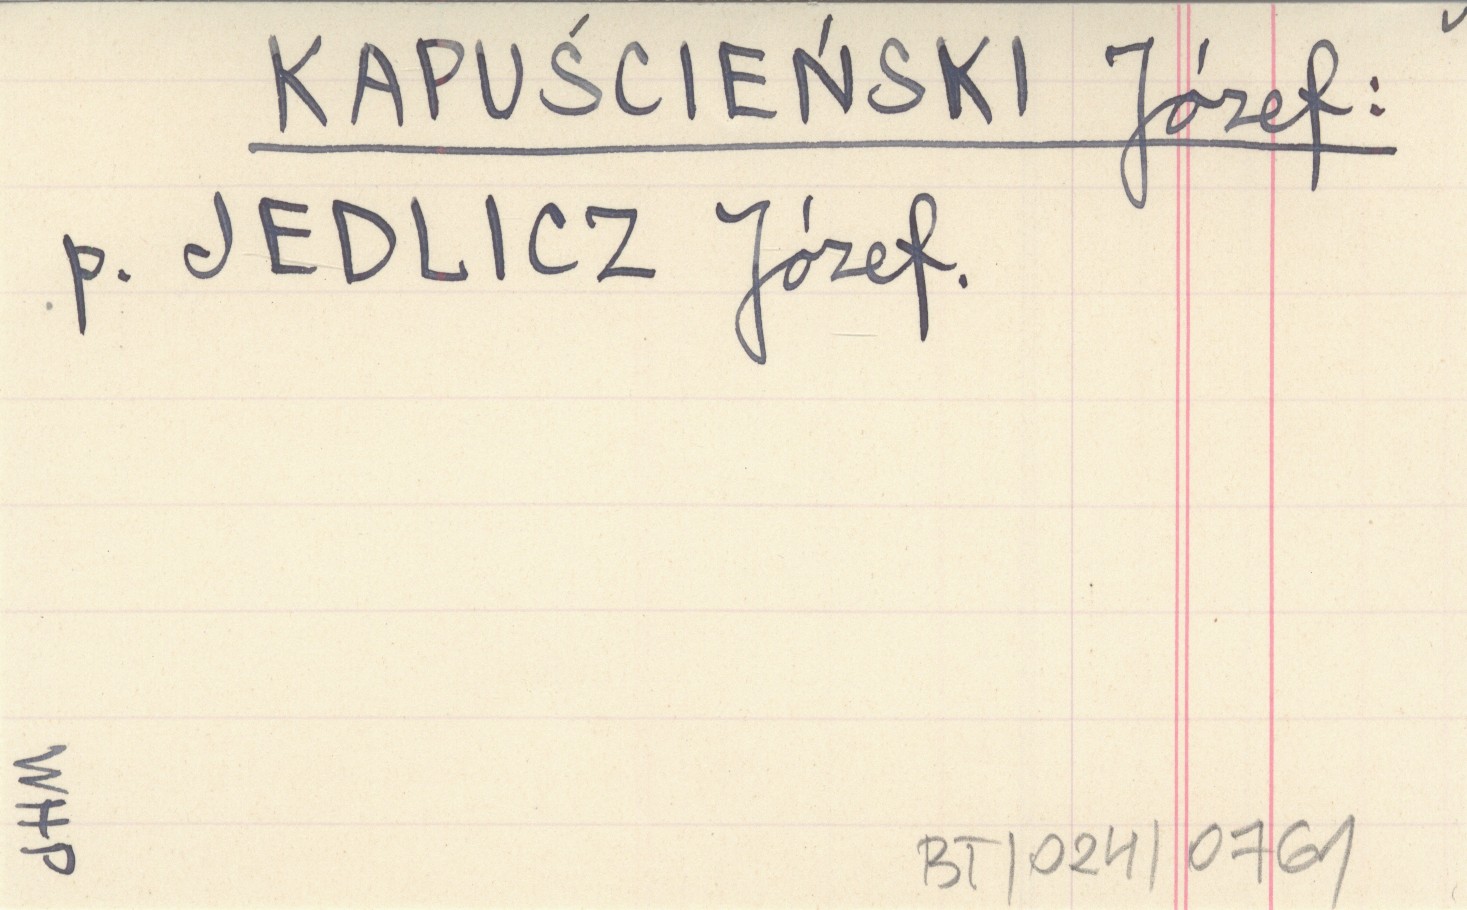 KAPUŚCIEŃSKI Józef:
p. JEDLICZ Józef.
WHP
BT/024/0761